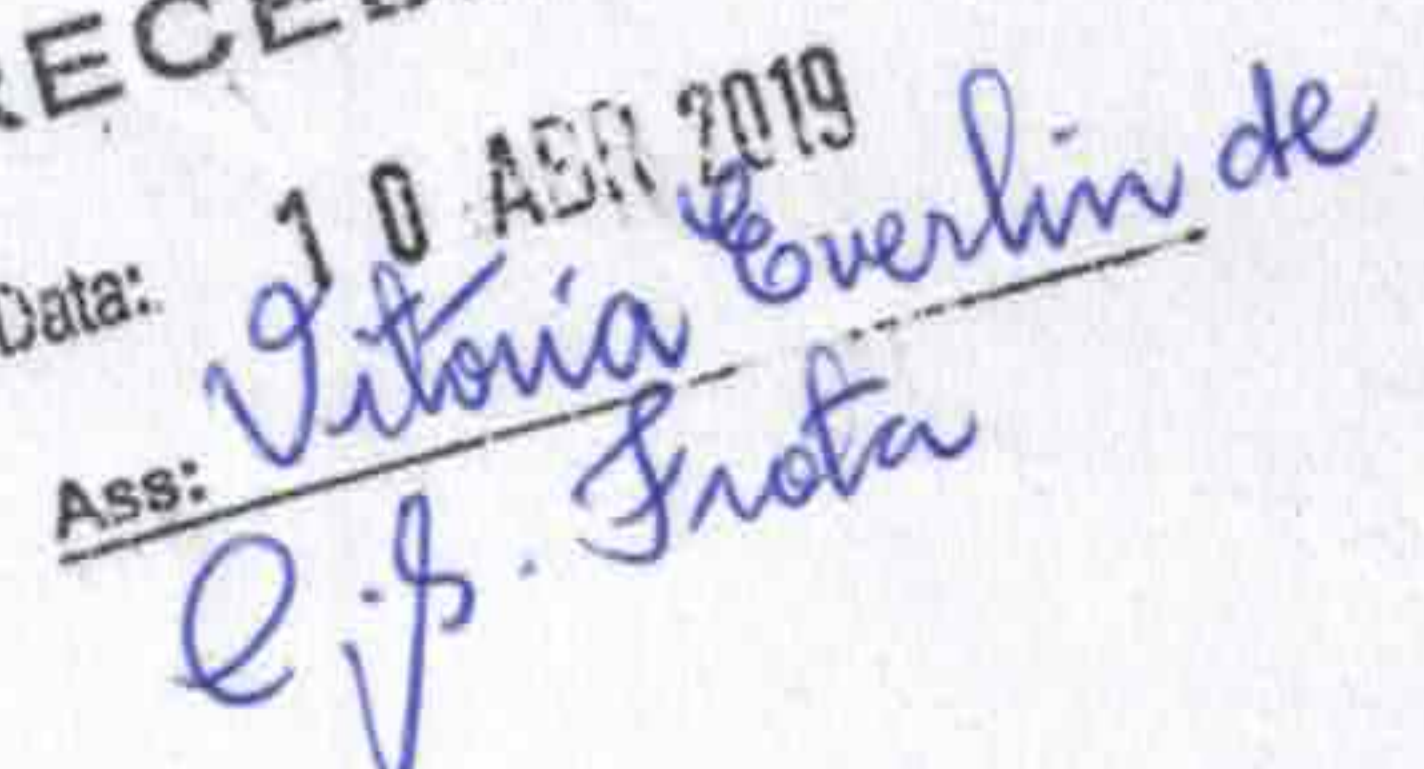 RECE
Data: 10 ABR 2019
Ass: Vitoria Everlin de
C. F. Frota